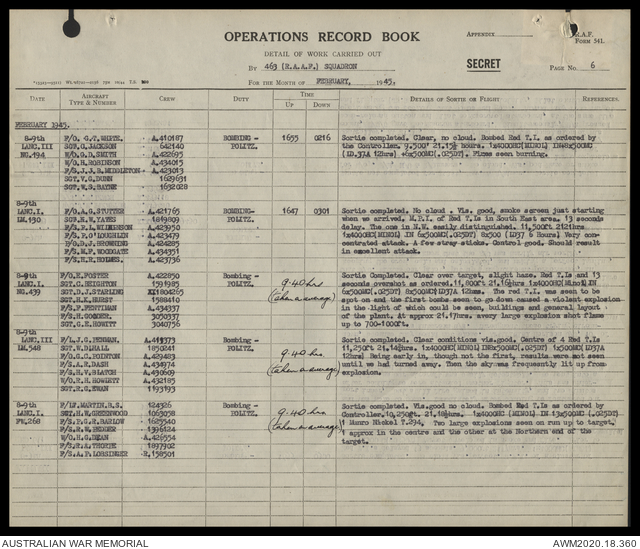 OPERATIONS RECORD BOOK
APPENDIX
R.A.F.
FORM 541.
DETAIL OF WORK CARRIED OUT
SECRET
BY 463 (R.A.A.F.) SQUADRON
PAGE NO. 6
FOR THE MONTH OF FEBRUARY, 1945.
DATE AIRCRAFT TYPE & NUMBER CREW DUTY TIME UP DOWN DETAILS OF SORTIE OR FLIGHT REFERENCES.
FEBRUARY 1945.
8-9th F/O. G.T. WHITE. A.410187 BOMBING - 1655 0216 Sortie completed. Clear, no cloud. Bombed Red T.I. as ordered by
LANC.III SGT.G. JACKSON 642140 POLITZ. the Controller. 9,500' 21.15½ hours. 1x4000HC(MINOL) IN+8x500MC
NG.194 F/O.G.D. SMITH A.422695 (LD.37A 12hrs) +6x500MC(.025DT). Fires seen burning.
W/O.H. ROBINSON A.434015
F/S.J.J.B. MIDDLETON A.423013
SGT.V.G. DUNN 1629631
SGT.W.S. BAYNE 1632028
8-9th
LANC.I. F/O.A.G. STUTTER A.421765 BOMBING - 1647 0301 Sortie completed. No cloud. Vis. good, smoke screen just starting
LM.130 SGT.H.W. YATES 1819809 POLITZ. when we arrived. M.P.I. of Red T.Is in South East area. 13 seconds
F/S.F.L. WILKINSON A.423950 delay. The one in N.W. easily distinguished. 11,500ft 2121hrs
F/S.F. O'LOUGHLIN A.423479 1x4000HC(MINOL) IN 6x500MC(.025DT) 8x500 (LD37 6 Hours) Very con-
F/O.D.J. BROWNING A.424285 centrated attack. A few stray sticks. Control good. Should result
F/S.M.F. WOODGATE A.434351 in excellent attack.
F/S.H.R. HOLMES. A.423736
8-9th F/O.E. FOSTER A.422850 Bombing - 9.40 hrs Sortie Completed. Clear over target, slight haze. Red T.Is and 13
LANC.I. SGT.C. HEIGHTON 1591985 POLITZ. (taken as average) seconds overshot as ordered. 11,800ft 21.16½hrs 1x4000HC(MINOL) IN
NG.439 SGT.D.J. STARLING 1804265 6x500MC(.025DT) 8x500MC LD37A 12hrs. The red T.I. was seen to
SGT.H.K. HURST 1588410 spot on and the first bombs seen to go down caused a violent explosion
F/S.P. PENTTMAN A.434337 in the light of which could be seen, buildings and general layout
SGT.C. COMMER 3050037 of the plant. At approx 21.17hrs. avery large explosion shot flame
SGT.G.E. HOWITT 3040756 up to 700-1000ft.
8-9th
LANC.III F/L.J.G. PENMAN. A.411373 Bombing - 9.40 hrs Sortie completed. Clear conditions vis.good. Centre of 4 Red T.Is
LM.548 SGT.W.D. HALL 1850241 POLITZ. (taken as average) 11,250ft 21.14½hrs. 1x4000HC(MINOL) IN8x500MC(.025DT) 1x500MC(LD37A
F/O.G.C. POINTON A.429483 12hrs) Being early in, though not the first, results were not seen
F/S.A.R. DASH A.434974 until we had turned away. Then the sky was frequently lit up from
F/S.H.V. BLATCH A.430609 explosion.
W/O.R.H. HOWLETT A.432185
SGT.R.G. EWAN 1193193
8-9th F/LT. MARTIN.R.S. 124326 Bombing - 9.40 hrs Sortie completed. Vis.good no cloud. Bombed Red T.I as ordered by
LANC.I. SGT.H.W. GREENWOOD 1063058 POLITZ. (taken as average) Controller.10,250ft. 21.18½hrs. 1x4000HC (MINOL) IN 13x500MC (.025DT)
SGT.P.G.R. BARLOW 1625340 1 Munro Nickel T.294. Two large explosions seen on run up to target,
F/S.R.W. HEDGER 1396124 1 approx in the centre and the other at the Northern end of the
W/O.H.G. DEAN A.426554 target.
F/S.R.A. THORPE 1897902
F/S.A.P. LORSINGER R.158501
AUSTRALIAN WAR MEMORIAL
AWM2020.18.360